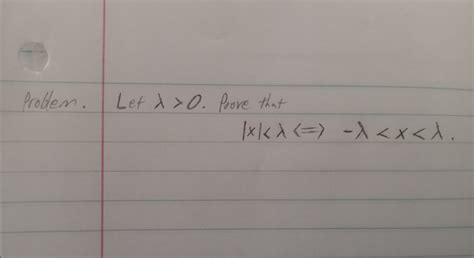 Problem. Let λ > 0. Prove that
|x| < λ <=> -λ < x < λ.